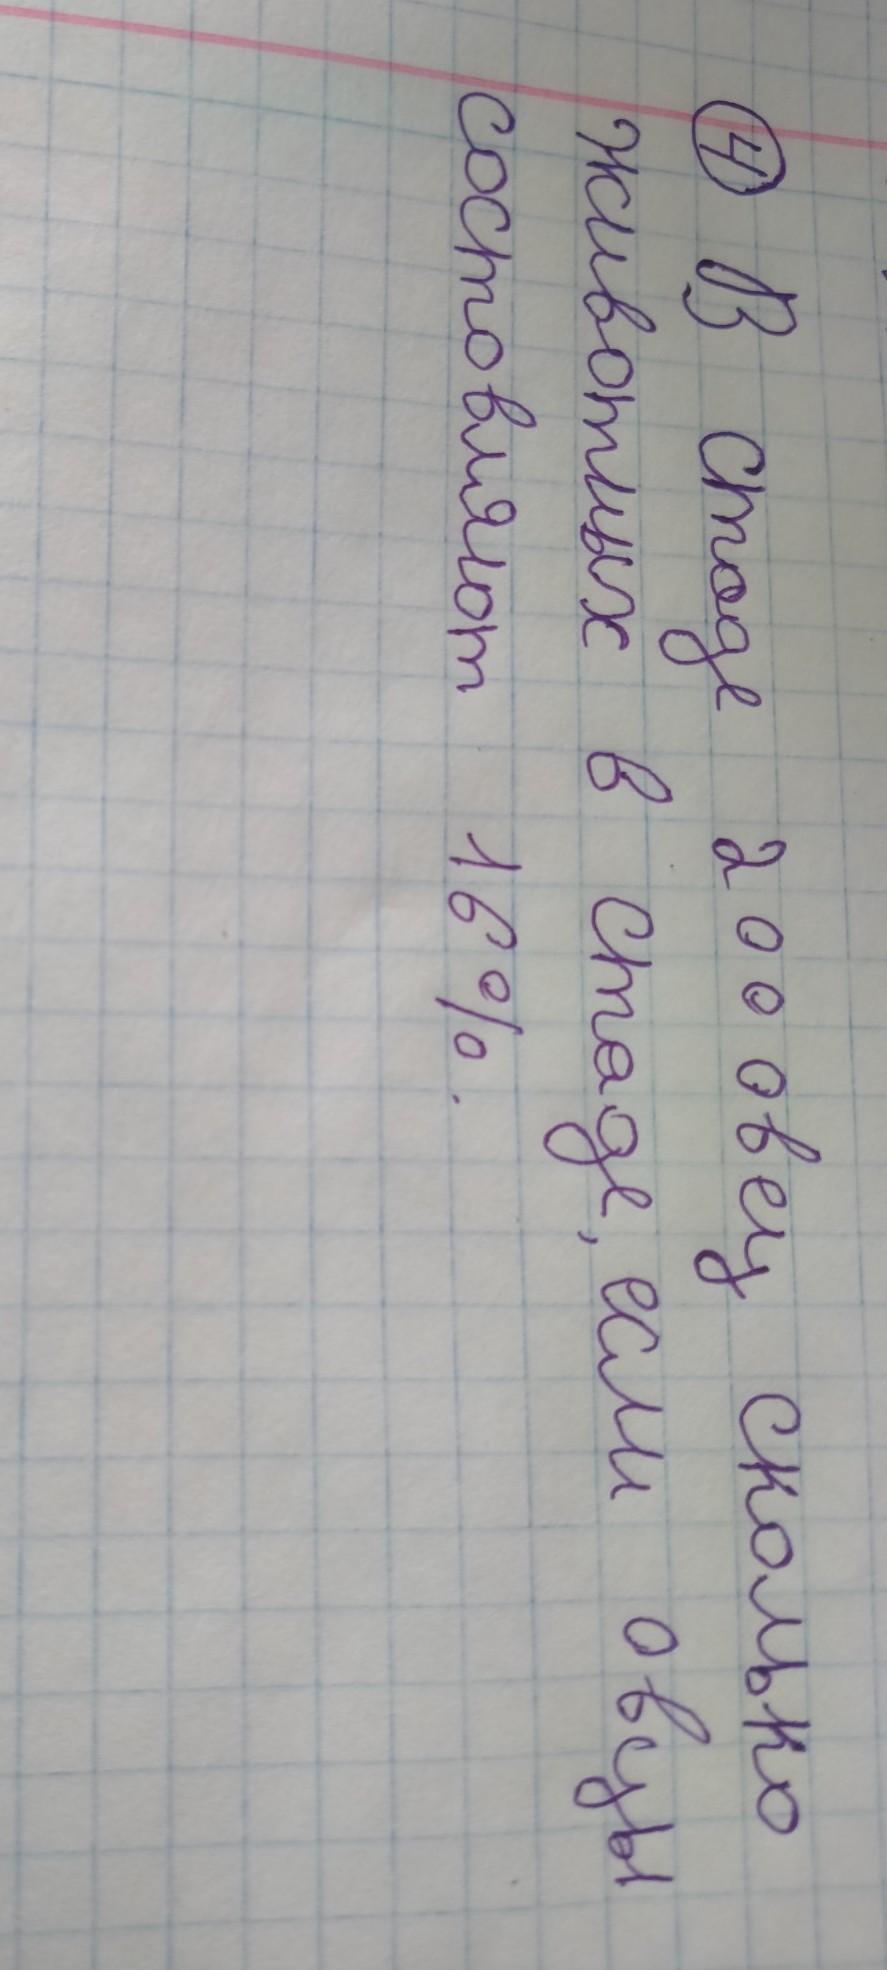 ④ В стаде 200 овец сколько
животных в стаде, если овцы
состовляют 16%.